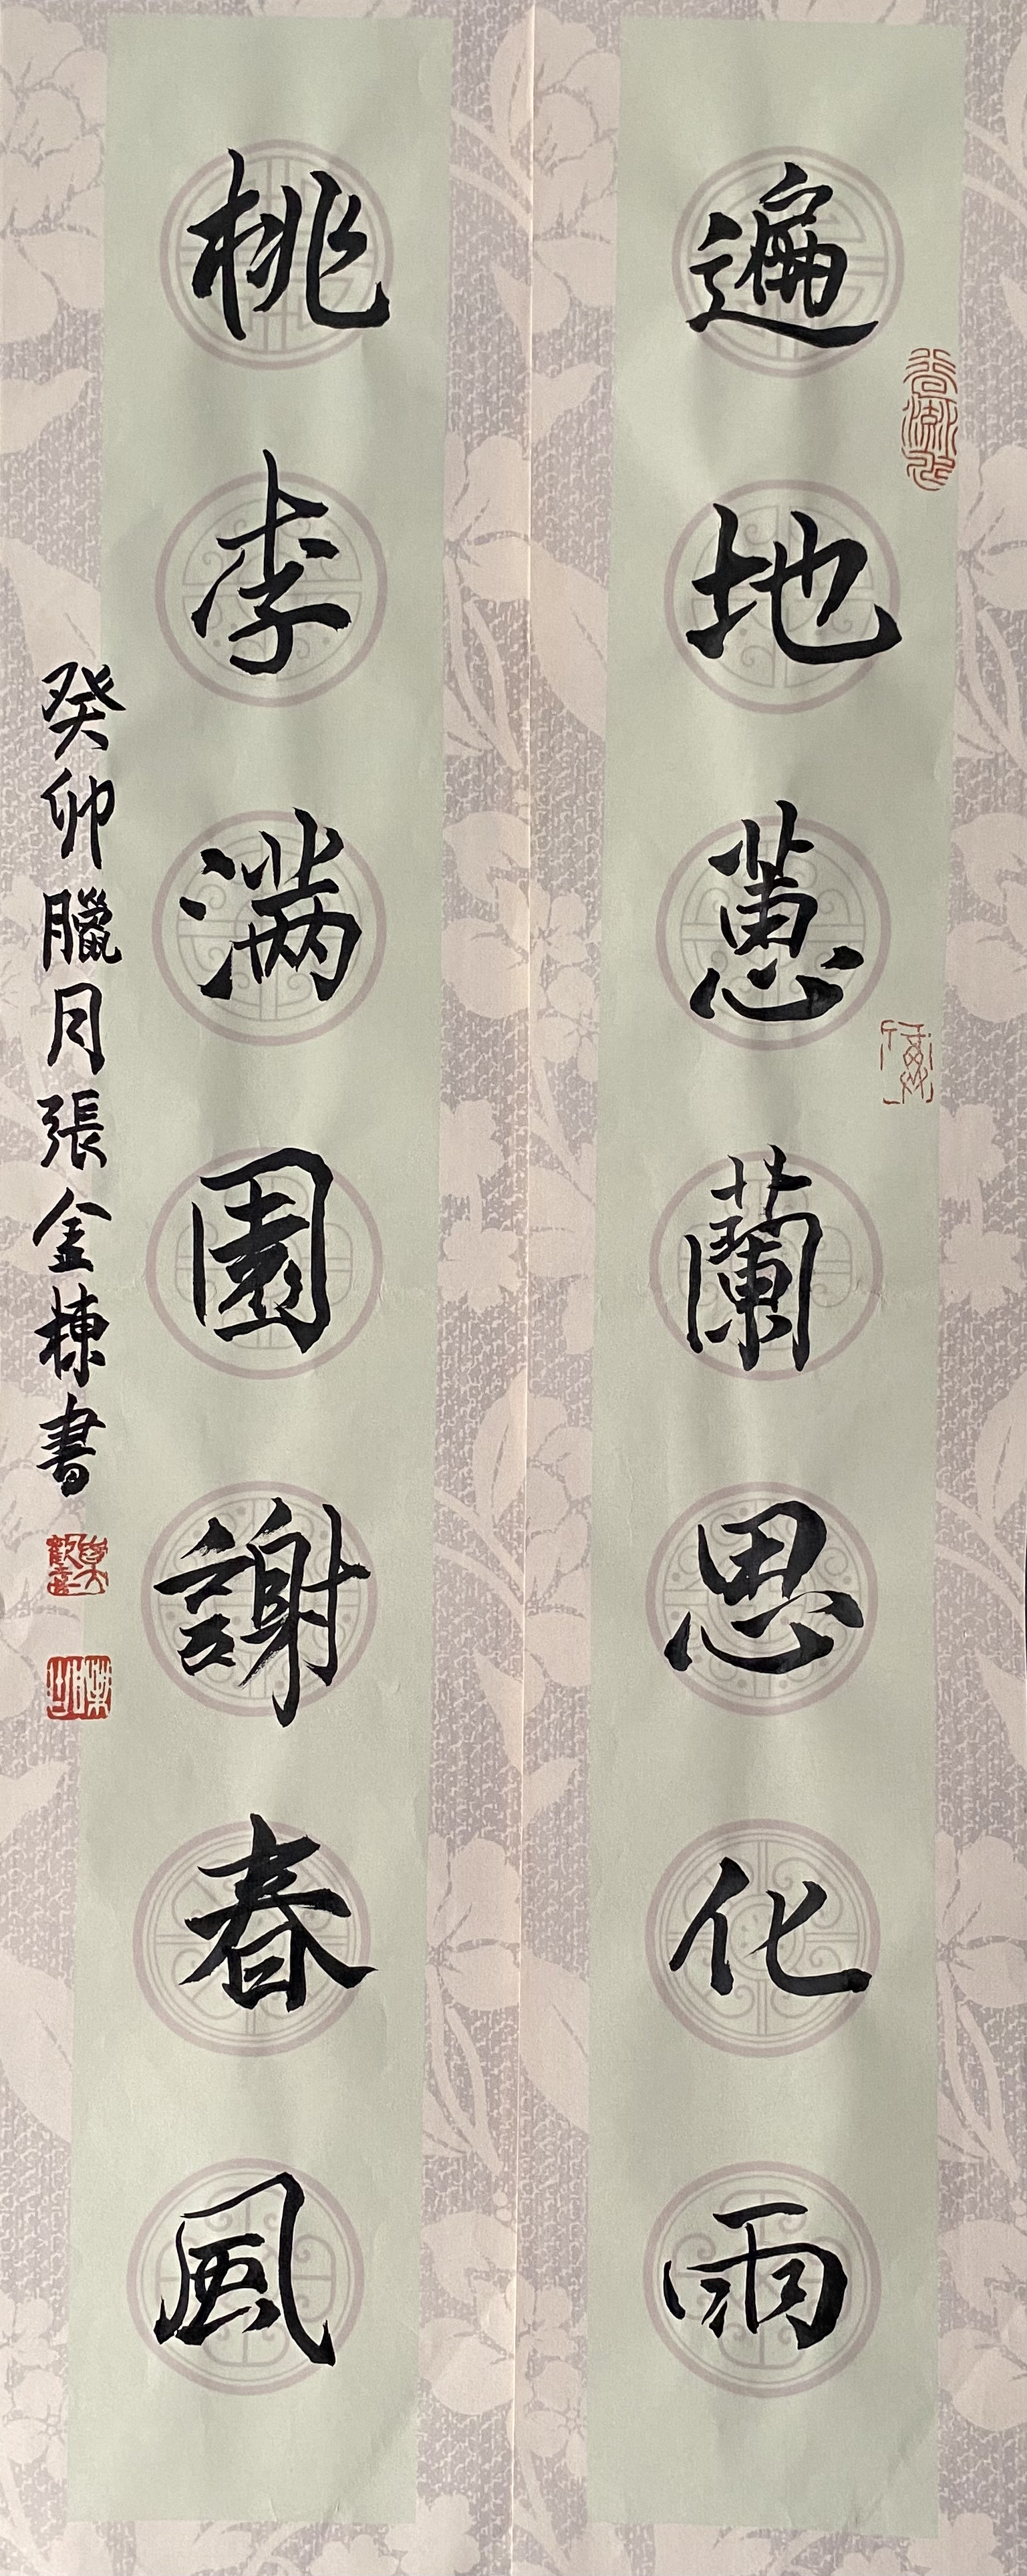 遍地蕙蘭思化雨
桃李滿園謝春風
癸卯臘月張金棟書